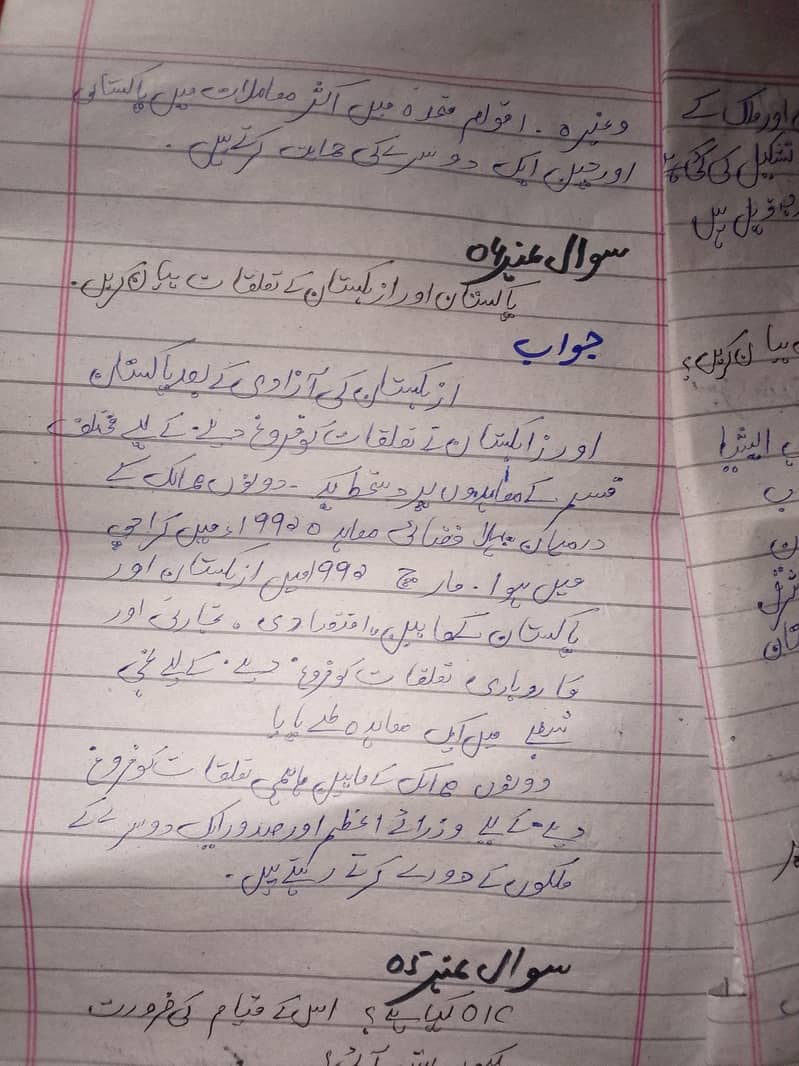 وغیرہ ۔ اقوام متحدہ میں اکثر معاملات میں پاکستانی
اور چین ایک دوسرے کی حمایت کرتے ہیں ۔
سوال نمبر 04
پاکستان اور ازبکستان کے تعلقات بیان کریں ۔
جواب
ازبکستان کی آزادی کے بعد پاکستان
اور زابکستان نے تعلقات کو فروغ دینے کے لیے مختلف
قسم کے معاہدوں پر دستخط کیے ۔ دونوں ممالک کے
درمیان پہلا فضائی معاہدہ 1992ء میں کراچی
میں ہوا ۔ مارچ 1992 میں ازبکستان اور
پاکستان کے مابین اقتصادی ، تجارتی اور
کاروباری تعلقات کو فروغ دینے کے لیے نجی
شعبے میں ایک معاہدہ طے پایا
دونوں ممالک کے مابین باہمی تعلقات کو فروغ
دینے کے لیے وزرائے اعظم اور صدور ایک دوسرے کے
ملکوں کے دورے کرتے رہتے ہیں ۔
سوال نمبر 05
OIC کیا ہے؟ اس کے قیام کی ضرورت
اور ملک کے
تشکیل کی گئی
ذیل ہیں
بیان کریں؟
ایشیا